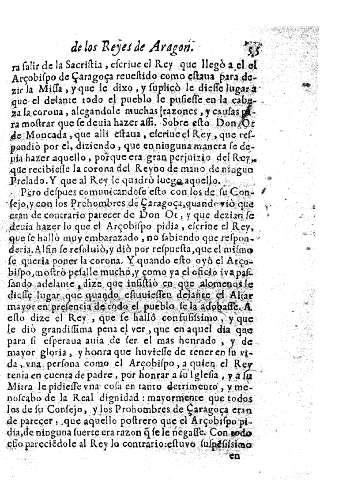 de los Reyes de Aragon. 55
ra salir de la Sacristia, escriue el Rey que llegò a el el
Arçobispo de Çaragoça reuestido como estaua para de-
zir la Missa, y que le dixo, y suplicò le diesse lugar a
que el delante todo el pueblo le pusesse en la cabe-
za la corona, alegandole muchas razones, y causas pa-
ra mostrar que se deuia hazer assi. Sobre esto Don Ot
de Moncada, que alli estaua, escriue el Rey, que res-
pondiò por el, diziendo, que en ninguna manera se de-
uia hazer aquello, porque era gran perjuizio del Rey,
que recibiesse la corona del Reyno de mano de ningun
Prelado. Y que al Rey le quadrò luego aquello.
Pero despues comunicandose esto con los de su Con-
sejo, y con los Prohombres de Çaragoça, quando viò que
eran de contrario parecer de Don Ot, y que dezian se
deuia hazer lo que el Arçobispo pidia, escriue el Rey,
que se hallò muy embarazado, no sabiendo que respon-
deria. Al fin se resoluiò, y diò por respuesta, que el mismo
se queria poner la corona. Y quando esto oyò el Arço-
bispo, mostrò pesalle mucho, y como ya el oficio iva pas-
sando adelante, dize que insistiò en que alomenos le
diesse lugar, que quando estuuiessen delante el Altar
mayor en presencia de todo el pueblo se la adobasse. A
esto dize el Rey, que se hallò confusissimo, y que
le diò grandissima pena el ver, que en aquel dia que
para si esperaua auia de ser el mas honrado, y de
mayor gloria, y honra que huviesse de tener en su vi-
da, vna persona como el Arçobispo, a quien el Rey
tenia en cuenta de padre, por honrar a su Iglesia, y a su
Mitra le pidiesse vna cosa en tanto detrimento, y me-
noscabo de la Real dignidad: mayormente que todos
los de su Consejo, y los Prohombres de Çaragoça eran
de parecer, que aquello postrero que el Arçobispo pi-
dia, de ninguna suerte era razon q̃ se le negasse. Con todo
esso pareciêdole al Rey lo contrario: estuvo suspẽsissimo
en